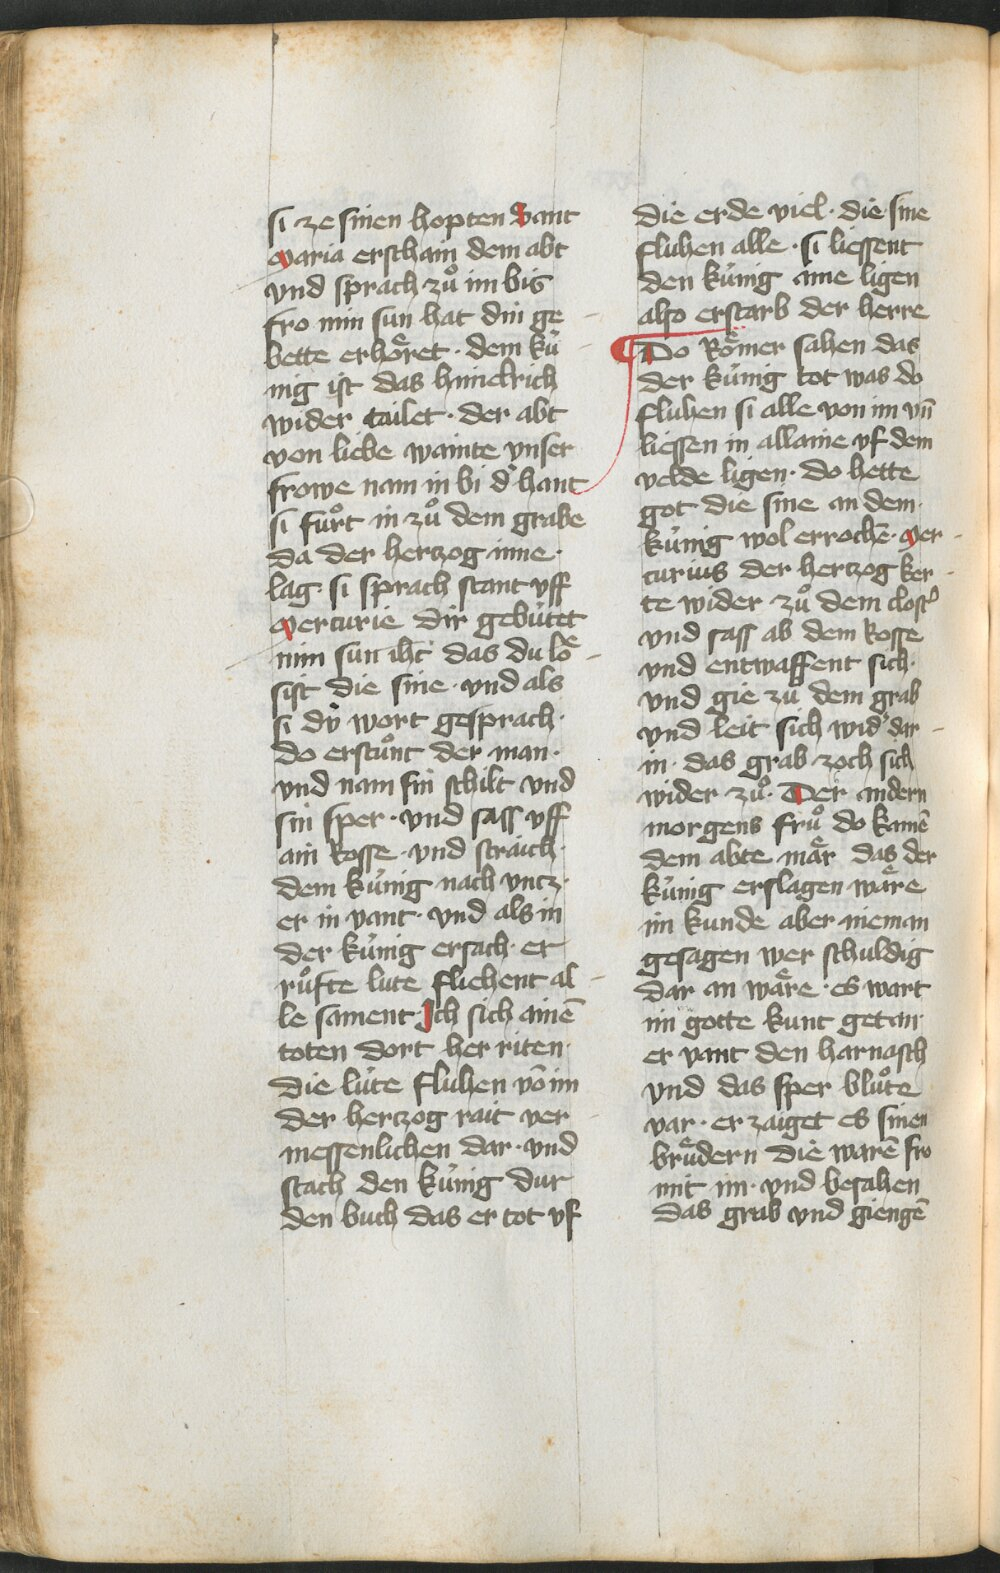 si ze sinen hopten Sant
Maria erschain dem abt
vnd sprach zuͦ im bis
fro min sun hat din ge
bette erhoͤret · dem kuͤ
nig ist das himelrich
wider tailet · der abt
von liebe wainte vnser
frowe nam in bi d' hant
si fuͦrt in zuͦ dem grabe
da der hertzog inne ·
lag · si sprach stant vff
Mercurie dir gebuͤtet
min sun ihc̄ das du loͤ
sist die sine · vnd als
si dy̍ wort gesprach ·
do erstuͦnt der man ·
vnd nam sin schilt vnd
sin sper · vnd sass vff
ain rosse · vnd straich ·
dem kuͤnig nach vntz ·
er in vant · vnd als in
der kuͤnig ersach · er
ruͦfte lute fliehent al
le sament Ich sich ainē
toten dort her riten ·
die luͤte fluhen vō im
der hertzog rait ver
messenlichen dar · vnd
stach den kuͤnig dur
den buch das er tot vf
die erde viel · die sine
fluhen alle · si liessent
den kuͤnig ime ligen
also erstarb der herre
Do Roͤmer sahen das
der kuͤnig tot was do
fluhen si alle von im vn̄
liessen in allaine vf dem
velde ligen · do hette
got die sine an dem ·
kuͤnig wol errochē · Mer
curius der hertzog ker
te wider · zuͦ dem clost'
vnd sass ab dem Rosse
vnd entwaffent sich ·
vnd gie zuͦ dem grab
vnd leit sich wid' dar
in · das grab zoch sich
wider zuͦ · Der andern
morgens fruͦ do kamē
dem abte maͤr das der
kuͤnig erslagen waͤre
im kunde aber nieman
gesagen wer schuldig
dar an waͤre · es wart
im gotte kunt getan ·
er vant den harnasch
vnd das sper bluͦte
var · er zaiget es sinen
bruͤdern die warē fro
mit im · vnd besahen
das grab vnd giengē